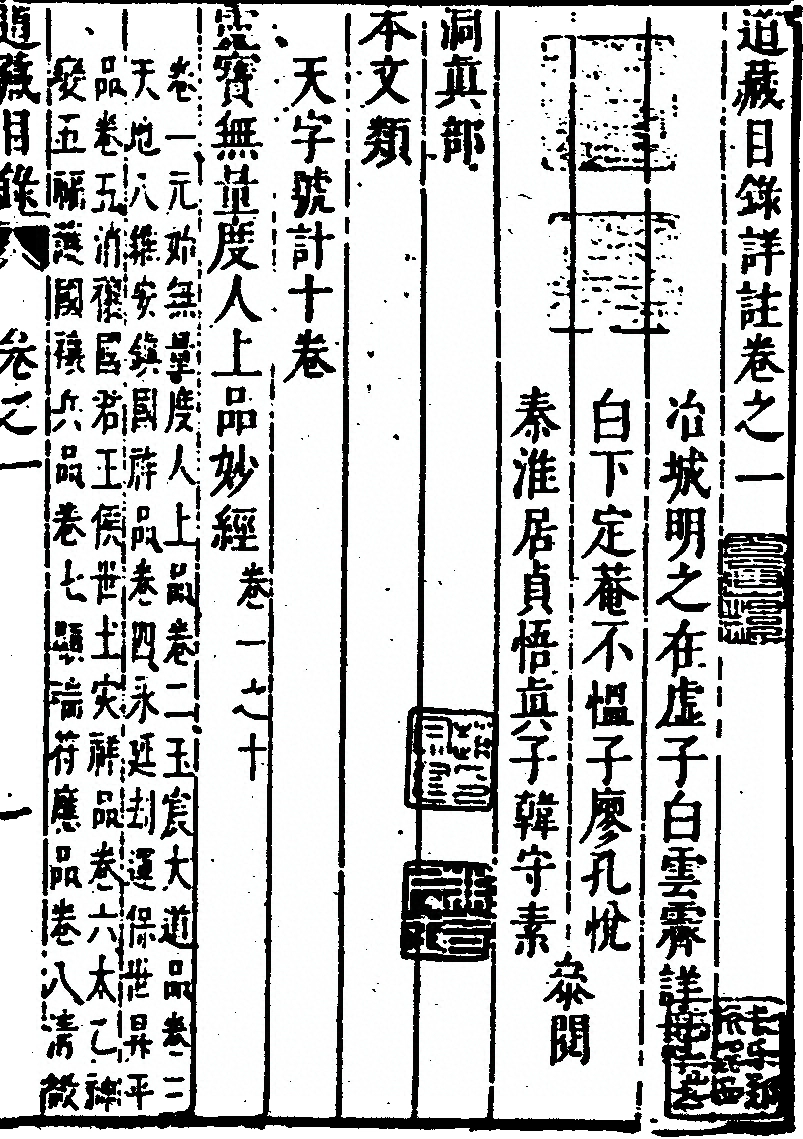 道藏目錄詳註卷之一
冶城明之在虛子白雲霽詳註
白下定菴不慍子廖孔悅
秦淮居貞悟真子韓守素
叅閱
洞真部
本文類
天字號計十卷
靈寶無量度人上品妙經卷一之十
卷一元始無量度人上品卷二玉宸大道品卷三
天地八維安鎮國祚品卷四永延劫運保世昇平
品卷五消禳國君王侯世土灾祥品卷六太乙神
變五福護國禳兵品卷七顯瑞符應品卷八清微
道藏目錄 卷之一 一